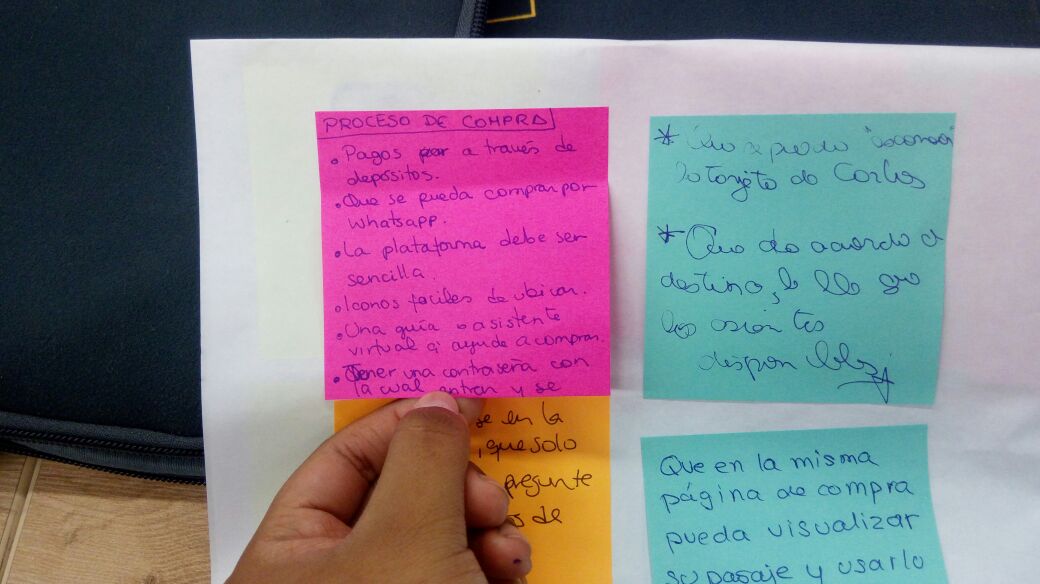 PROCESO DE COMPRA
• Pagos por a través de
depósitos.
• Que se pueda comprar por
whatsapp.
• La plataforma debe ser
sencilla.
• Iconos fáciles de ubicar.
• Una guía o asistente
virtual q' ayude a comprar.
• Tener una contraseña con
la cual entran y se
se en la
, que solo
pregunte
s de
* Que se pueda
la tarjeta de
* Que de acuerdo al
destino, le
los asientos
Que en la misma
página de compra
pueda visualizar
su pasaje y usarlo